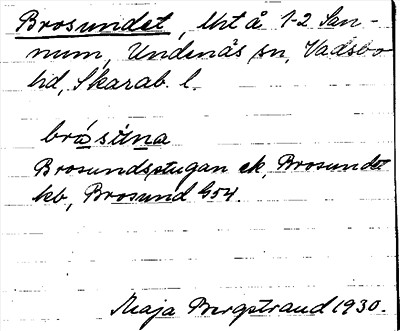 Brosundet, Urt å 1-2 San-
num, Undenäs sn, Vadsbo
hd, Skarab. l.
bròsúna
Brosundsstugan ek, Brosundet
kb, Brosund G54.
Maja Bergstrand 1930.